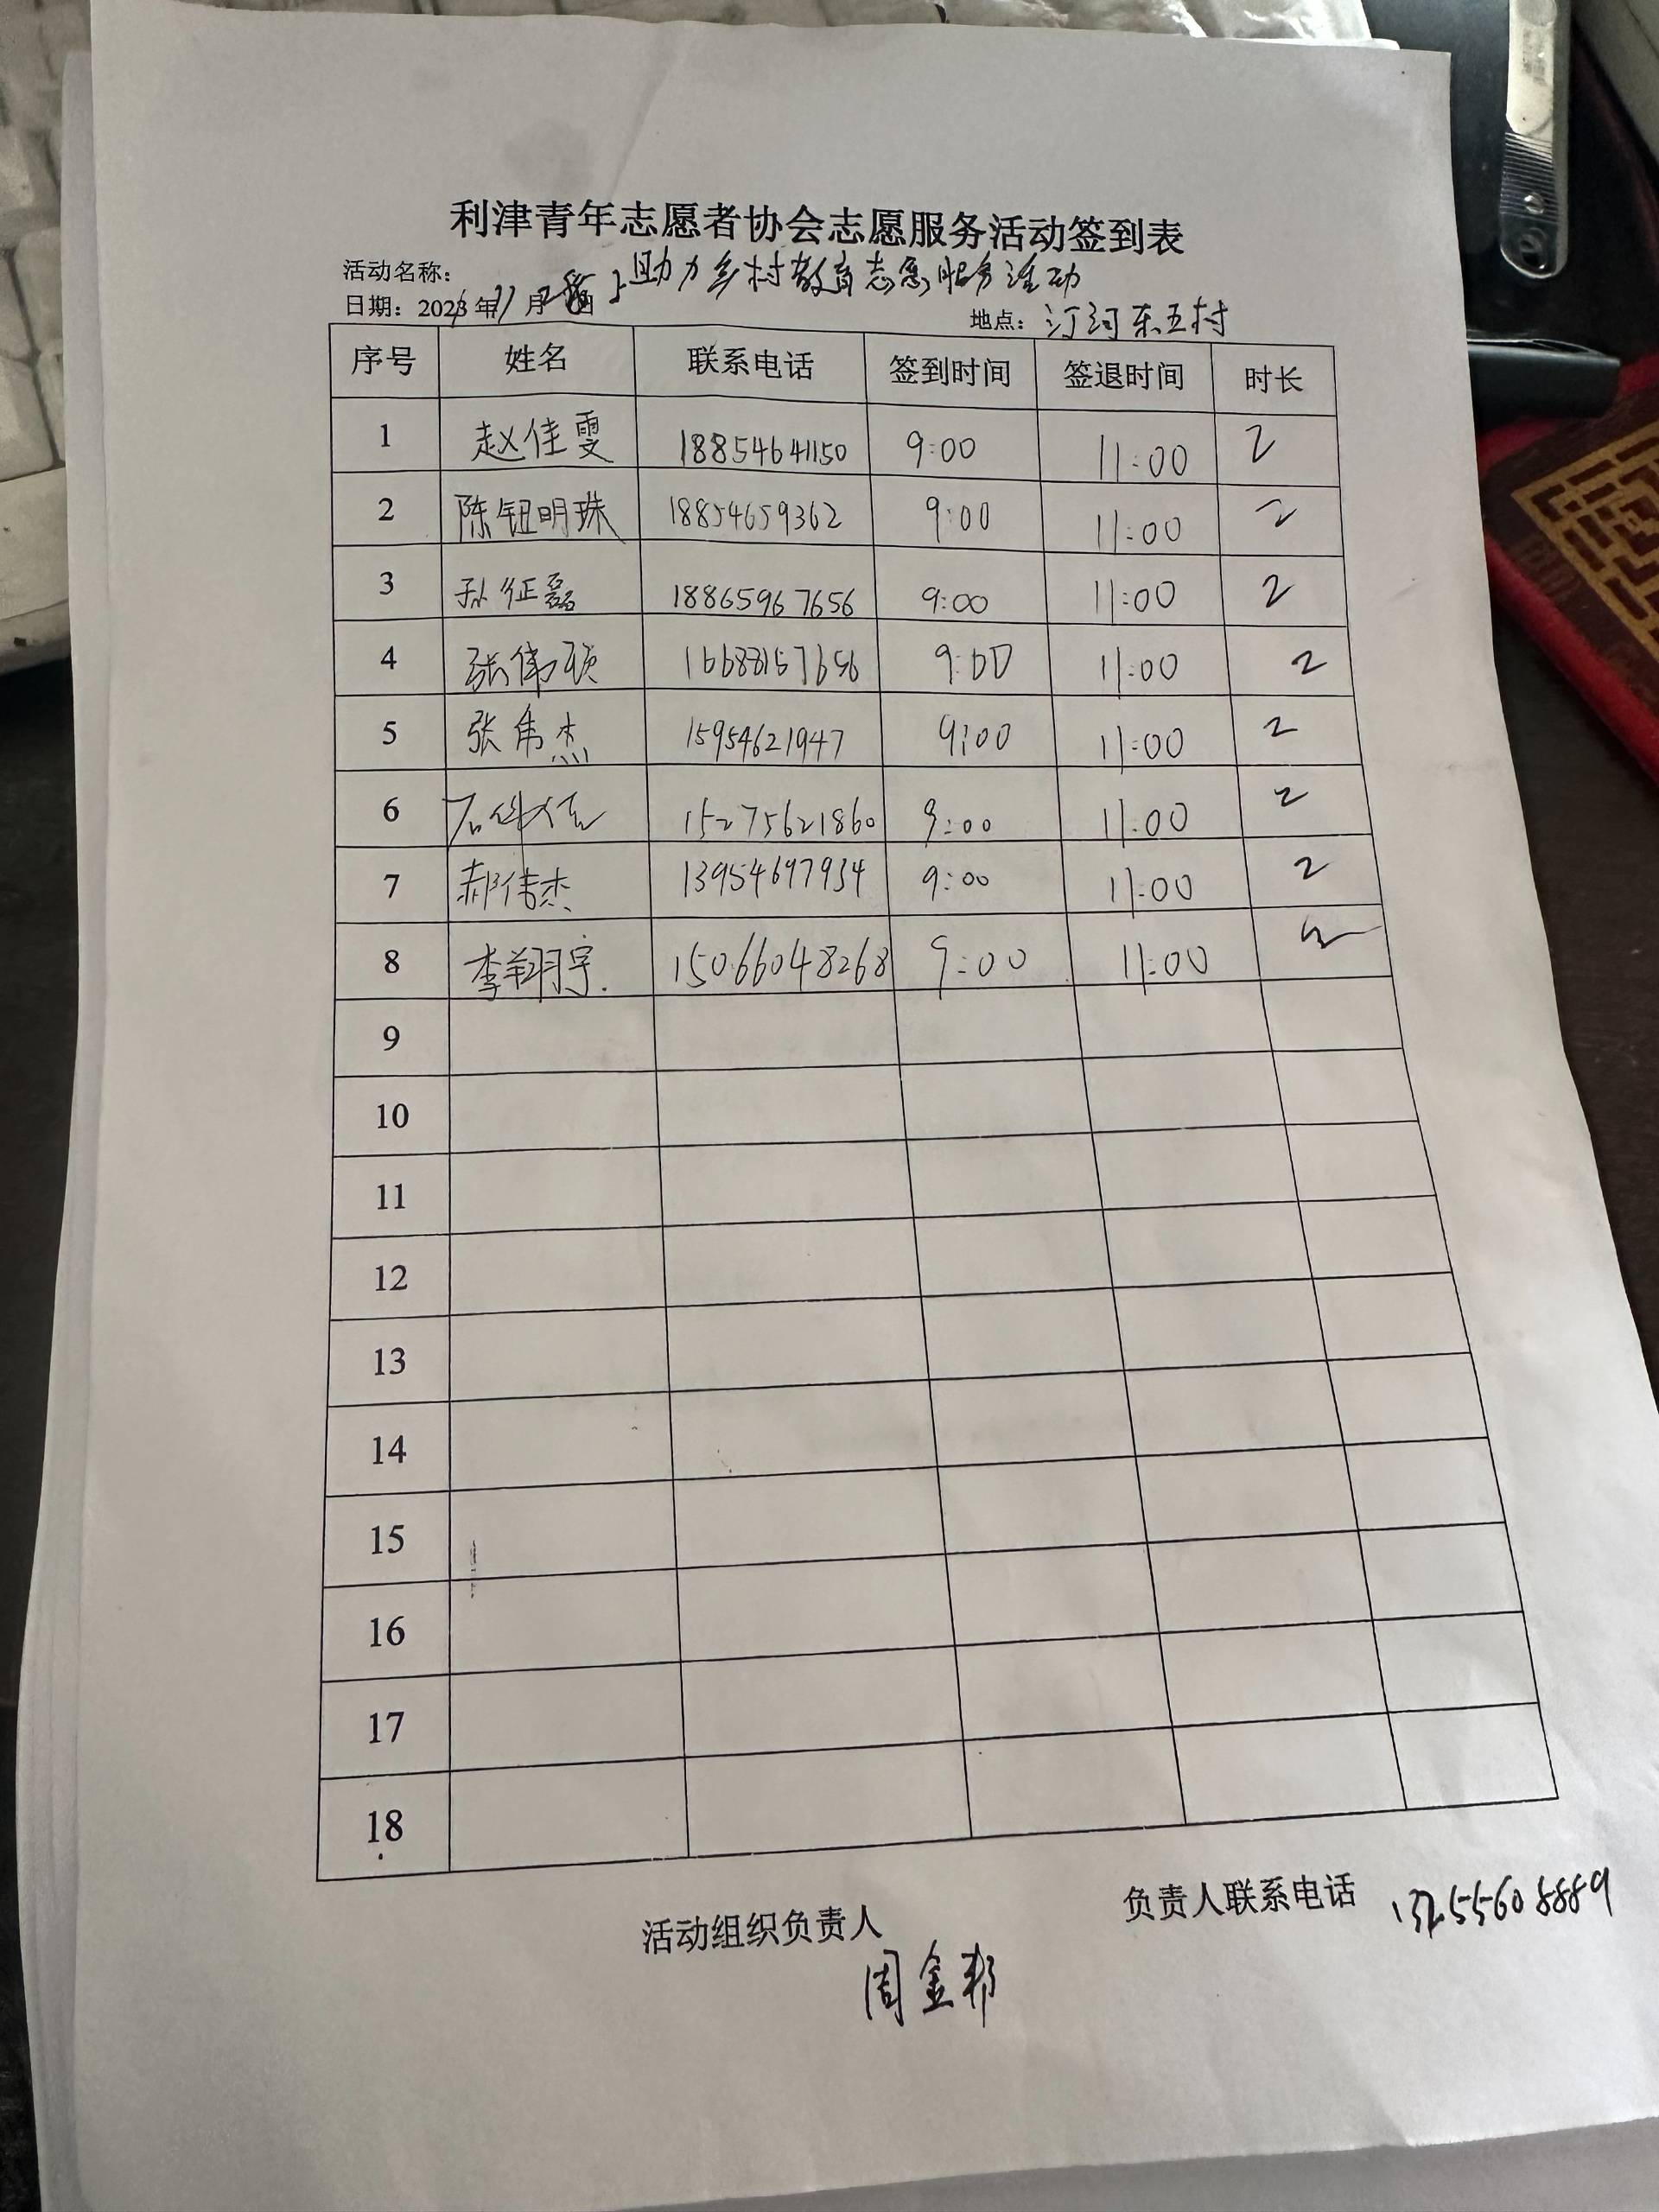 利津青年志愿者协会志愿服务活动签到表
活动名称: 助力乡村教育志愿服务活动
日期: 202 年11月
地点: 汀河东五村
序号 姓名 联系电话 签到时间 签退时间 时长
1 赵佳雯 18854641150 9:00 11:00 2
2 陈钰明珠 18854659362 9:00 11:00 2
3 孙征磊 18865967656 9:00 11:00 2
4 张伟硕 16688157656 9:00 11:00 2
5 张伟杰 15954621947 9:00 11:00 2
6 15275621860 9:00 11:00 2
7 郝伟杰 13954697934 9:00 11:00 2
8 李翔宇. 15066048268 9:00 11:00
9
10
11
12
13
14
15
16
17
18
活动组织负责人 负责人联系电话
周金邦